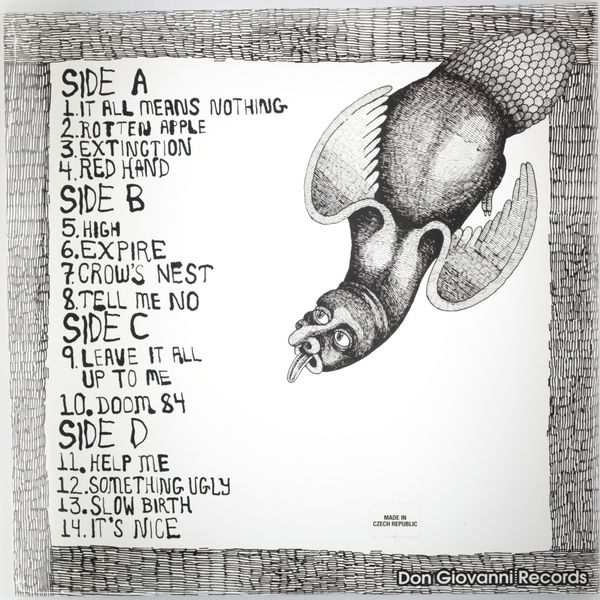 SIDE A
1. IT ALL MEANS NOTHING
2. ROTTEN APPLE
3. EXTINCTION
4. RED HAND
SIDE B
5. HIGH
6. EXPIRE
7. CROW'S NEST
8. TELL ME NO
SIDE C
9. LEAVE IT ALL
UP TO ME
10. DOOM 84
SIDE D
11. HELP ME
12. SOMETHING UGLY
13. SLOW BIRTH
14. IT'S NICE
MADE IN
CZECH REPUBLIC
Don Giovanni Records